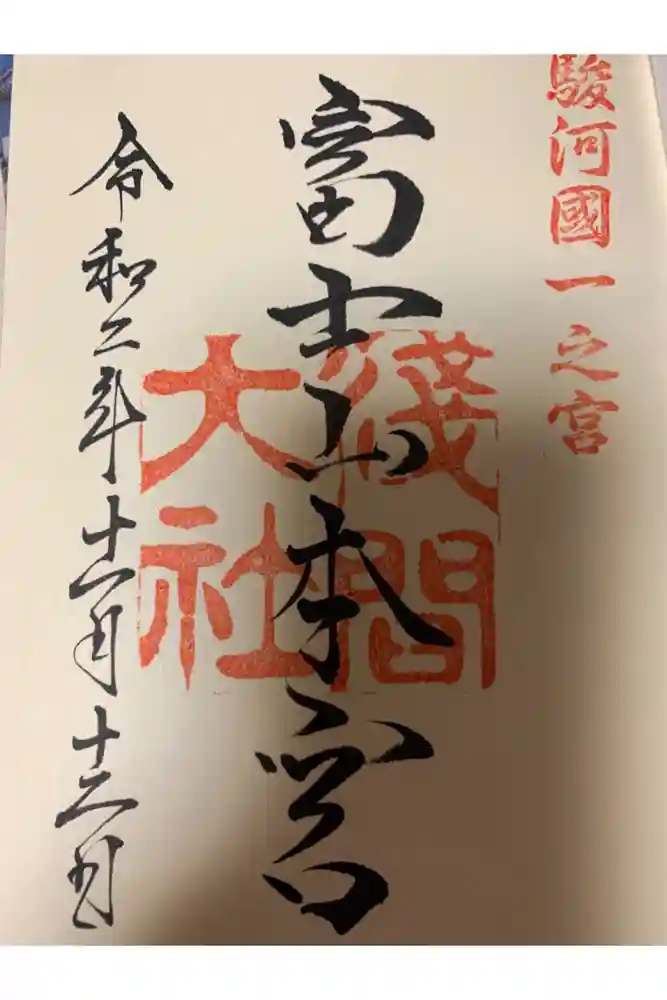 駿河國一之宮
富士山本宮
淺間
大社
令和二年十一月十二日